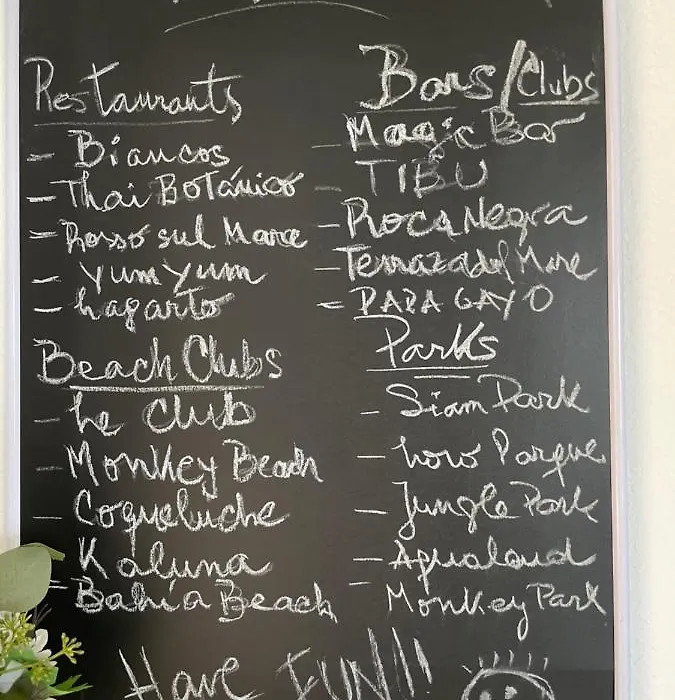 Restaurants
- Biancos
- Thai Botánico
- Rosso sul Mare
- YUM YUM
- Lagarto
Beach Clubs
- Le Club
- Monkey Beach
- Coqueluche
- Kaluna
- Bahía Beach
Bars/Clubs
- Magic Bar
- TIBU
- Roca Negra
- Terraza del Mare
- PAPA GAYO
Parks
- Siam Park
- Loro Parque
- Jungle Park
- Aqualand
- Monkey Park
Have FUN!!